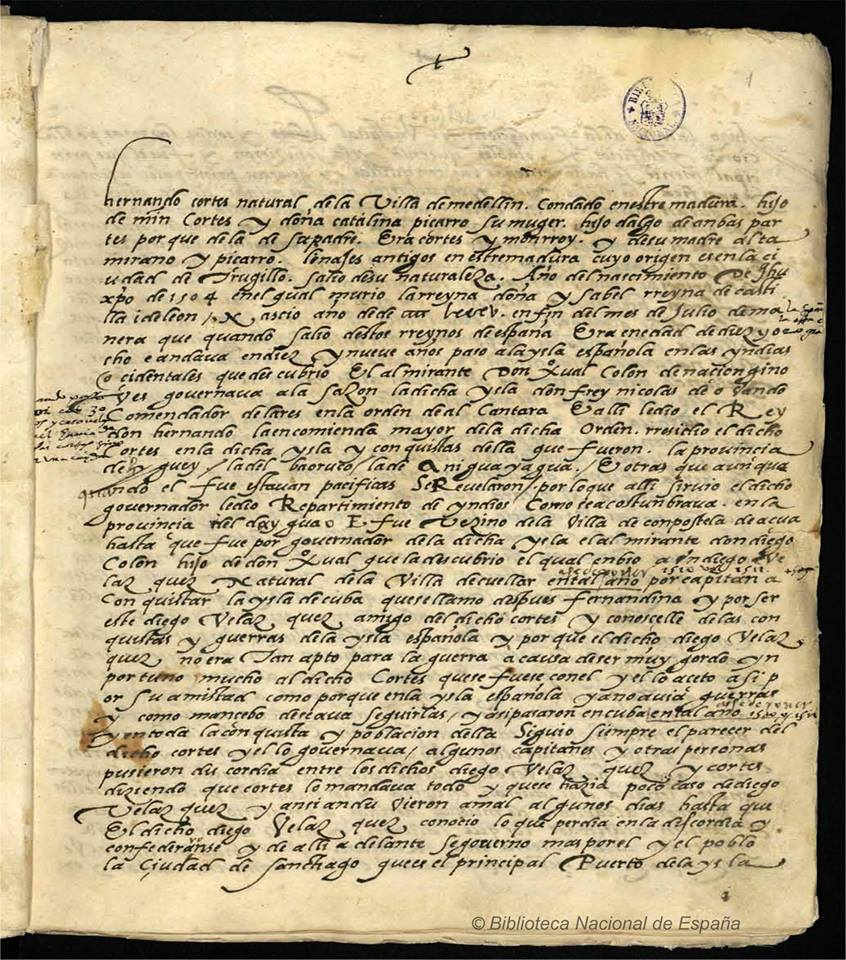 1
hernando cortes natural de la Villa de medellin. Condado en estremadura. hijo
de min Cortes y doña catalina piçarro su muger. hijo dalgo de anbas par
tes por que de la de su padre. Era cortes y monrroy. y de su madre alta
mirano y piçarro. lenajes antigos en estremadura cuyo origen es en la ci
udad de Trugillo. salio de su naturaleza. Año del nascimiento De Jhu
xpo de 1504 en el qual murio la rreyna doña ysabel rreyna de casti
lla i de leon / Nascio año de de en fin del mes de Julio de ma
nera que quando salio destos rreynos de españa Era en edad de diez y o
cho e andava en diez y nueve años paso a la ysla española en las yndias
ocidentales que descubrio El almirante Don Xual Colon de nacion gino
ves governava a la sazon la dicha ysla don frey nicolas de ovando
Comendador de lares en la orden de al Cantara E alli le dio el Rey
don hernando la encomienda mayor de la dicha Orden. rresidio el dicho
cortes en la dicha ysla y conquistas della que fueron. la provincia
de yguey / la del baoruco / la de Aniguayagua. / E otras que aunque
quando el fue estavan pacificas Se Revelaron / por lo que alli sirvio el dicho
governador le dio Repartimiento de yndios Como se acostunbrava. en la
provincia del dayguao E. fue Vezino de la Villa de conpostela de acua
hasta que fue por governador de la dicha ysla el almirante don diego
Colon hijo de don Xual que la descubrio el qual enbio a un diego Ve
laz quez Natural de la Villa de cuellar en tal año por capitan a
Conquistar la ysla de cuba que se llamo despues Fernandina y por ser
este diego Velaz quez amigo del dicho cortes y conoscelle de las con
quistas y guerras de la ysla española y por que el dicho diego Velaz
quez no era Tan apto para la guerra a causa de ser muy gordo yn
portuno mucho al dicho Cortes que se fuese con el y el lo aceto asi p
or su amistad como porque en la ysla española ya no avia guerras
y como mancebo deseava seguirlas / y asi pasaron en cuba en tal año
y en toda la conquista y poblacion della Siguio siempre el parecer del
dicho cortes y el lo governava / algunos capitanes y otras personas
pusieron discordia entre los dichos diego Velaz quez y cortes
diziendo que cortes lo mandava todo y que se hazia poco caso de diego
Velaz quez y ansi anduvieron a mal algunos dias hasta que
El dicho diego Velaz quez conocio lo que perdia en la discordia y
confederanse y de alli adelante se governo mas por el y el poblo
la Ciudad de Sanctiago que es el principal Puerto de la ysla
1
© Biblioteca Nacional de España